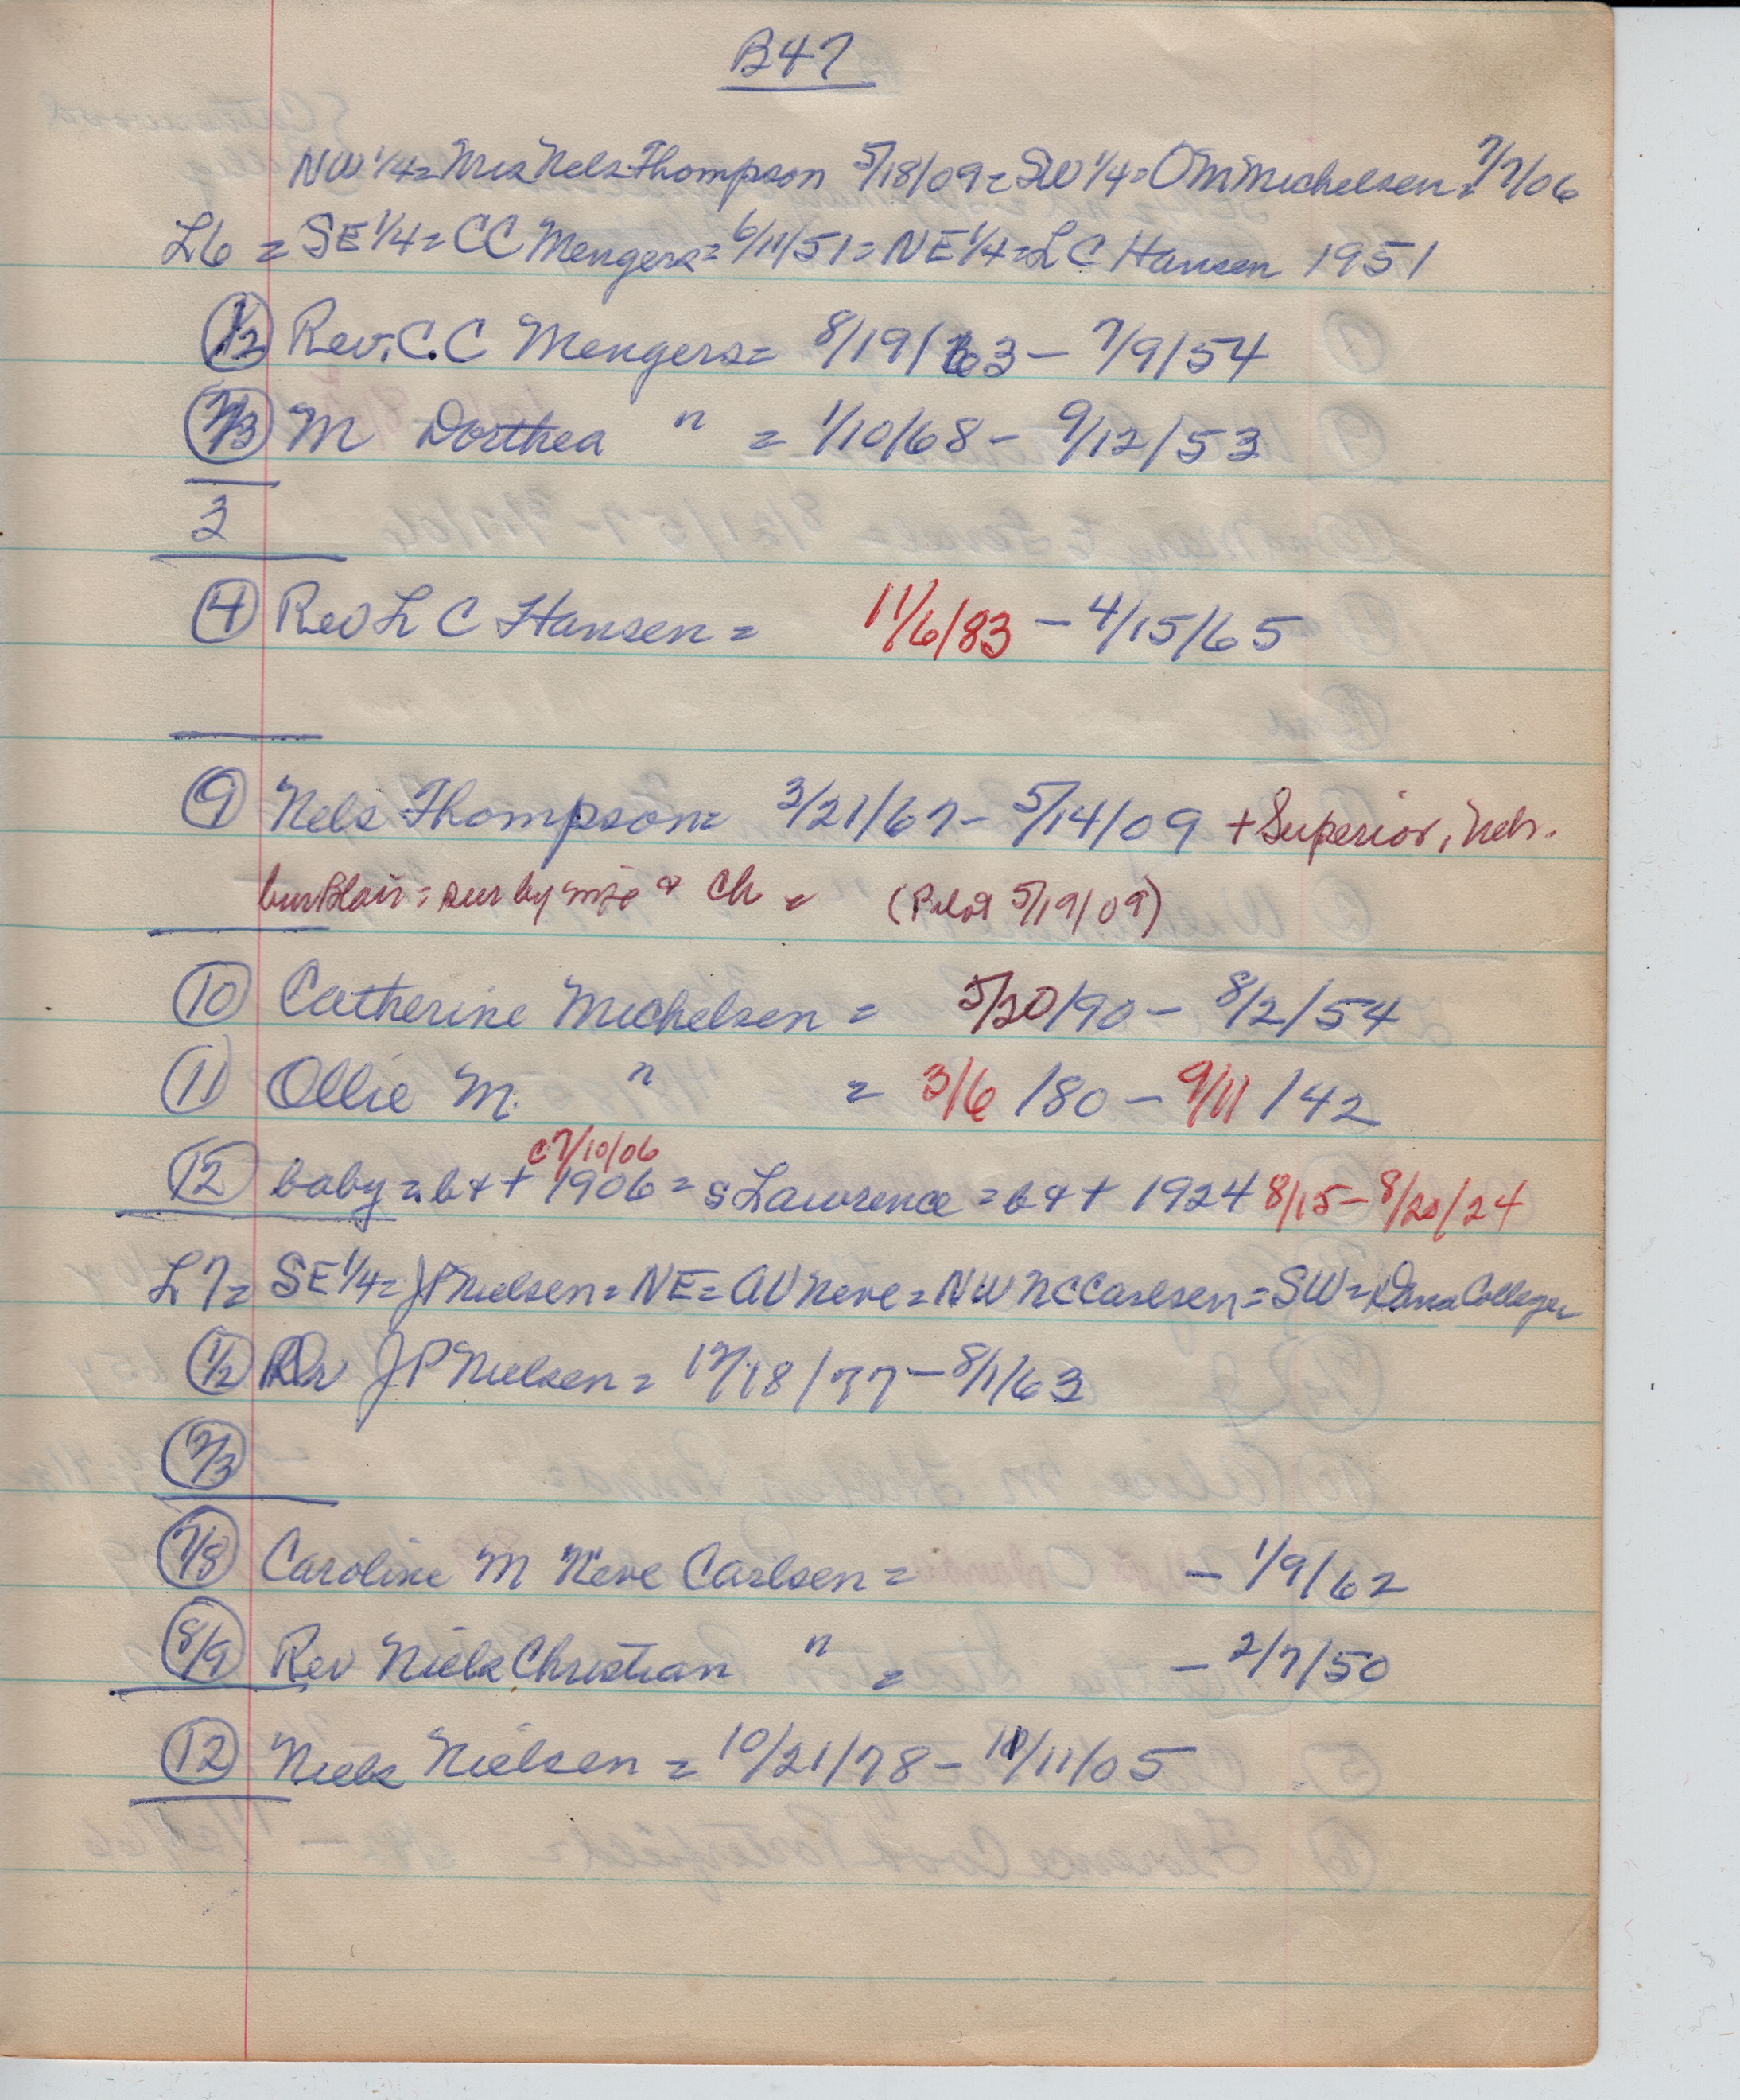 B47
NW 1/4 = Mrs Nels Thompson 5/18/09 = SW 1/4 = O M Michelsen = 7/7/06
L6 = SE 1/4 = CC Mengers = 6/11/51 = NE 1/4 = L C Hansen 1951
1/2 Rev. C. C Mengers = 8/19/63 – 7/9/54
2/3 M Dorthea " = 1/10/68 – 9/12/53
3
4 Rev L C Hansen = 11/6/83 – 4/15/65
9 Nels Thompson = 3/21/67 – 5/14/09 + Superior, Neb.
bur Blair = sur by wife & ch = (Pilot 5/19/09)
10 Catherine Michelsen = 5/20/90 – 8/2/54
11 Ollie M. " = 3/6/80 – 9/11/42
c 7/10/06
12 baby = b & + 1906 = s Lawrence = b & + 1924 8/15 – 8/20/24
L7 = SE 1/4 = JP Nielsen = NE = AV Neve = NW NC Carlsen = SW = Dana College
1/2 Dr J P Nielsen = 12/18/77 – 8/1/63
2/3
7/8 Caroline M Neve Carlsen = – 1/9/62
8/9 Rev Niels Christian " = – 2/7/50
12 Niels Nielsen = 10/21/78 – 11/11/05